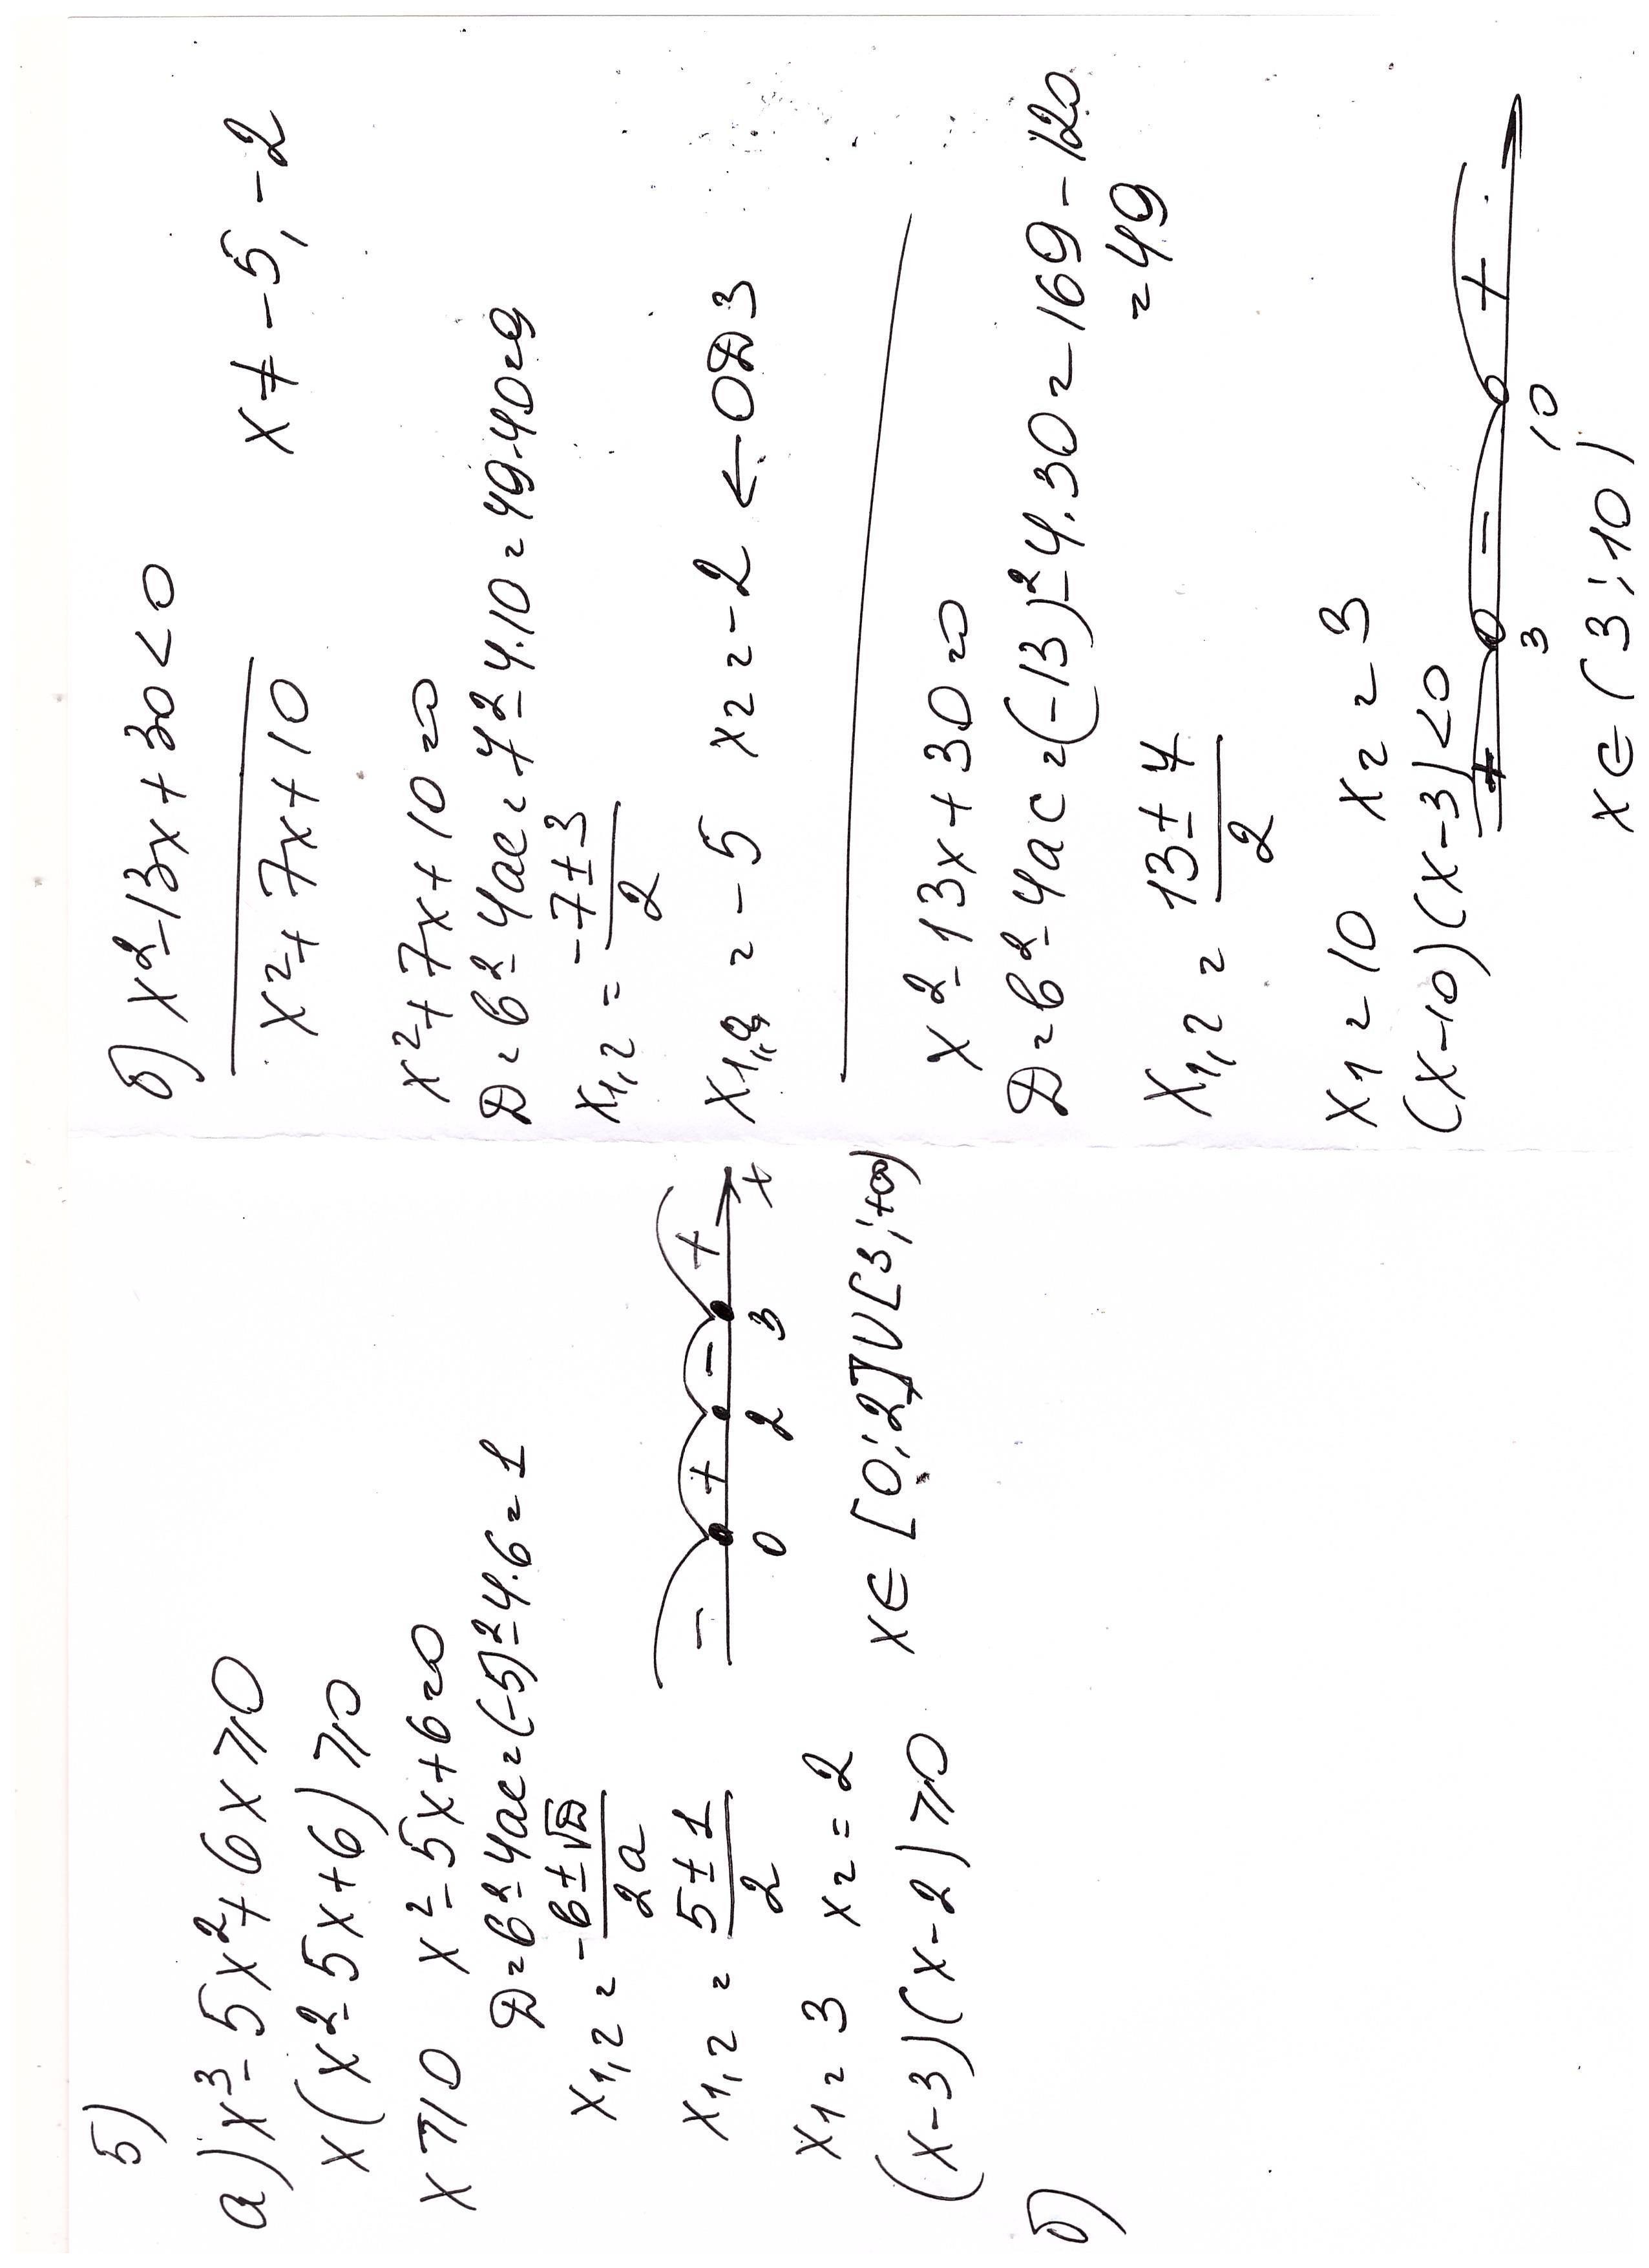 5)
а) x³ - 5x² + 6x ⩾ 0
x(x² - 5x + 6) ⩾ 0
x ⩾ 0   x² - 5x + 6 = 0
D = b² - 4ac = (-5)² - 4·6 = 1
x1,2 = (-b ± √D)/2a
x1,2 = (5 ± 1)/2
x1 = 3   x2 = 2
(x-3)(x-2) ⩾ 0
- + - +
0 2 3 x
x ∈ [0; 2] U [3; +∞)
б)
б) (x² - 13x + 30)/(x² + 7x + 10) < 0
x ≠ -5, -2
x² + 7x + 10 = 0
D = b² - 4ac = 7² - 4·10 = 49 - 40 = 9
x1,2 = (-7 ± 3)/2
x1,2 = -5   x2 = -2 ← ОДЗ
x² - 13x + 30 = 0
D = b² - 4ac = (-13)² - 4·30 = 169 - 120
= 49
x1,2 = (13 ± 7)/2
x1 = 10   x2 = 3
(x-10)(x-3) < 0
+ - +
3 10
x ∈ (3; 10)